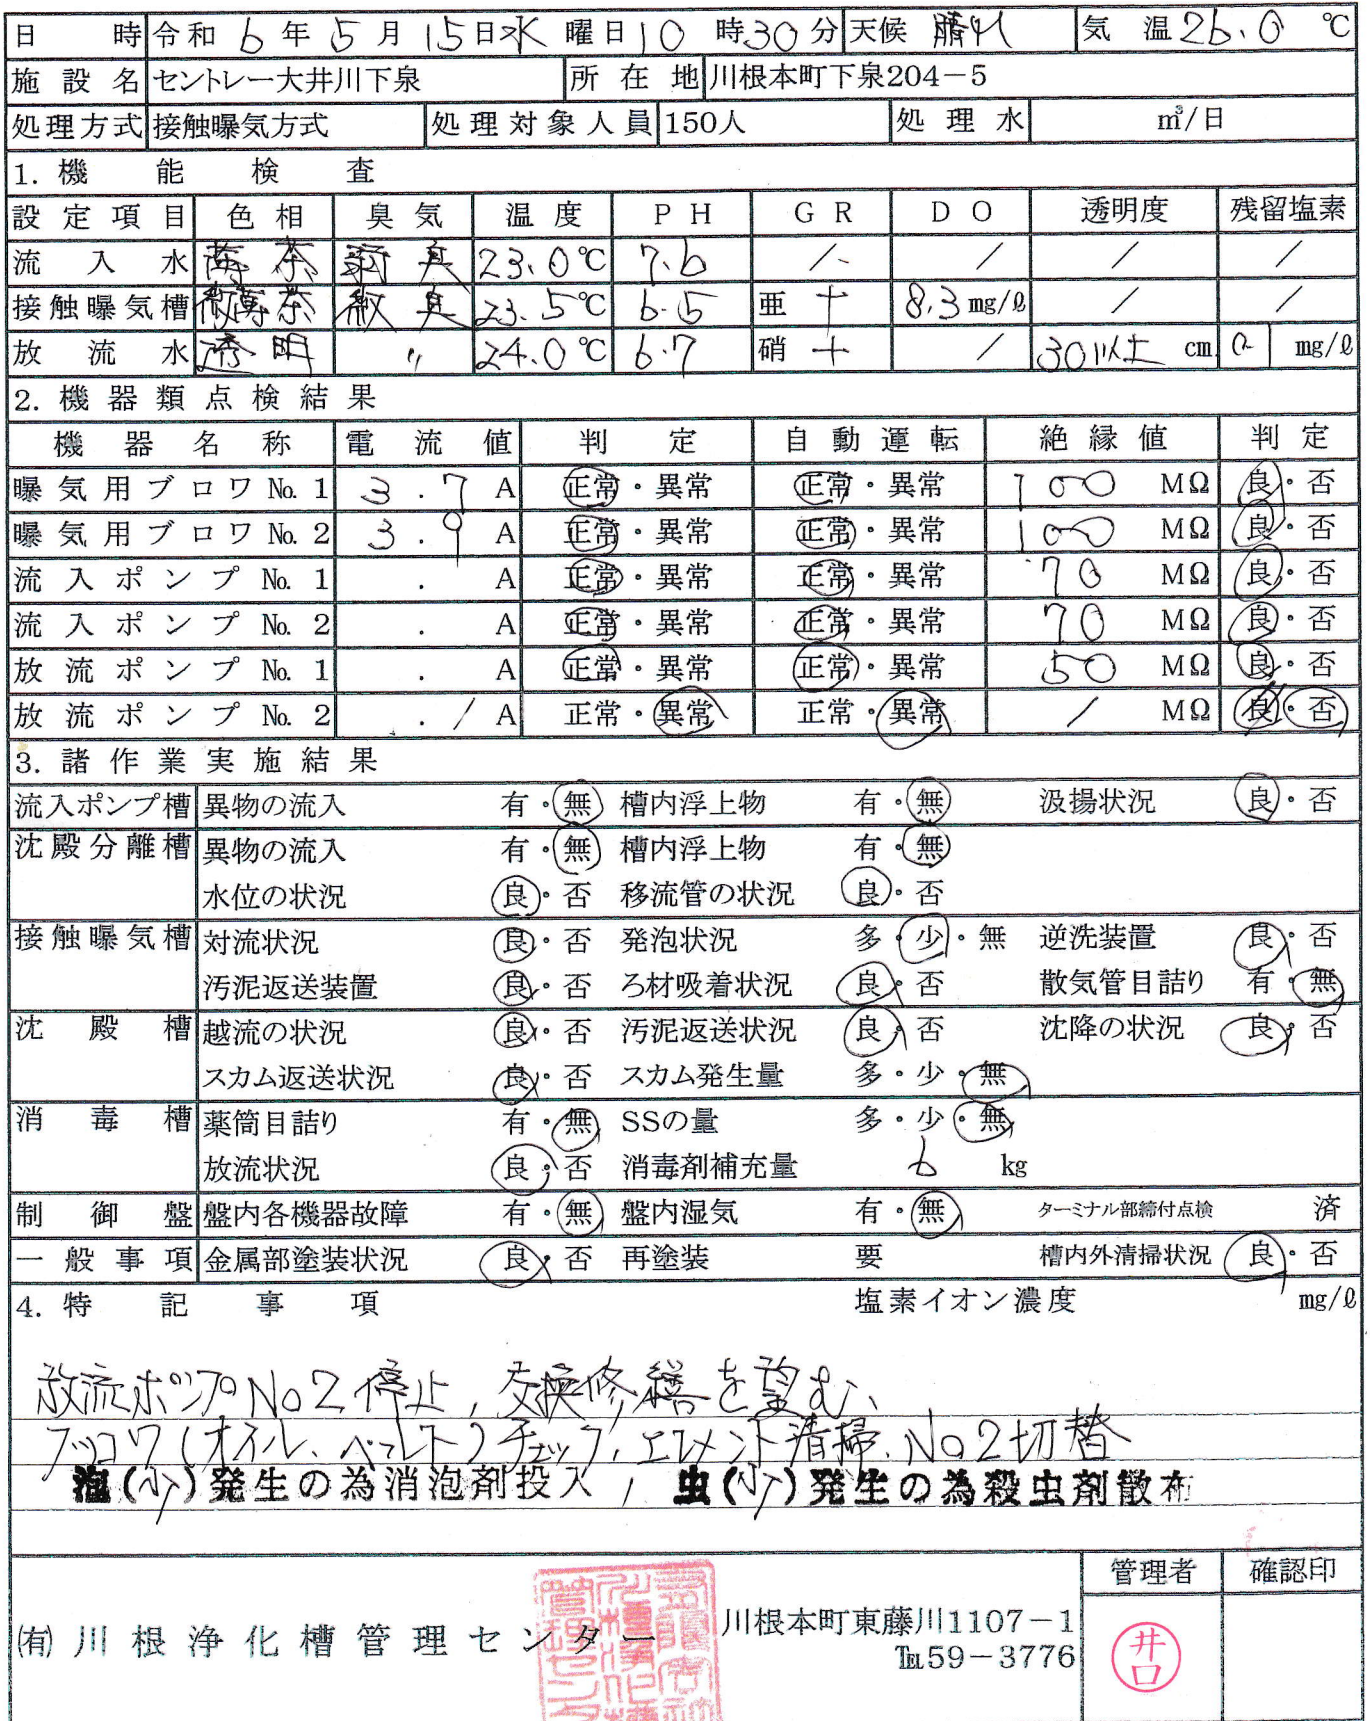 日 時 令和 6 年 5 月 15日 水 曜日 10 時 30 分 天候 晴れ 気 温 26.0 ℃
施 設 名 セントレー大井川下泉 所 在 地 川根本町下泉204－5
処理方式 接触曝気方式 処理対象人員 150人 処 理 水 ㎥/日
1. 機 能 検 査
設 定 項 目 色 相 臭 気 温 度 P H G R D O 透明度 残留塩素
流 入 水 薄 茶 臭 23.0℃ 7.6 / / / /
接触曝気槽 微薄茶 微 臭 23.5℃ 6.5 亜 ＋ 8.3 mg/ℓ / /
放 流 水 透 明 〃 24.0℃ 6.7 硝 ＋ / 30以上 cm mg/ℓ
2. 機 器 類 点 検 結 果
機 器 名 称 電 流 値 判 定 自 動 運 転 絶 縁 値 判 定
曝 気 用 ブ ロ ワ №. 1 3 . 7 A 正常・異常 正常・異常 100 MΩ 良・否
曝 気 用 ブ ロ ワ №. 2 3 . 9 A 正常・異常 正常・異常 100 MΩ 良・否
流 入 ポ ン プ №. 1 . A 正常・異常 正常・異常 70 MΩ 良・否
流 入 ポ ン プ №. 2 . A 正常・異常 正常・異常 70 MΩ 良・否
放 流 ポ ン プ №. 1 . A 正常・異常 正常・異常 50 MΩ 良・否
放 流 ポ ン プ №. 2 . / A 正常・異常 正常・異常 / MΩ 良・否
3. 諸 作 業 実 施 結 果
流入ポンプ槽 異物の流入 有・無 槽内浮上物 有・無 汲揚状況 良・否
沈殿分離槽 異物の流入 有・無 槽内浮上物 有・無
水位の状況 良・否 移流管の状況 良・否
接触曝気槽 対流状況 良・否 発泡状況 多・少・無 逆洗装置 良・否
汚泥返送装置 良・否 ろ材吸着状況 良・否 散気管目詰り 有・無
沈 殿 槽 越流の状況 良・否 汚泥返送状況 良・否 沈降の状況 良・否
スカム返送状況 良・否 スカム発生量 多・少・無
消 毒 槽 薬筒目詰り 有・無 SSの量 多・少・無
放流状況 良・否 消毒剤補充量 6 kg
制 御 盤 盤内各機器故障 有・無 盤内湿気 有・無 ターミナル部締付点検 済
一 般 事 項 金属部塗装状況 良・否 再塗装 要 槽内外清掃状況 良・否
4. 特 記 事 項 塩素イオン濃度 mg/ℓ
放流ポンプNo2停止, 交換修繕を望む、
ブロワ(オイル、ベルト)チェック, エレメント清掃、No2切替
泡(少)発生の為消泡剤投入 , 虫(少)発生の為殺虫剤散布
管理者 確認印
㈲ 川 根 浄 化 槽 管 理 セ ン タ ー 川根本町東藤川1107－1
℡59－3776
井口